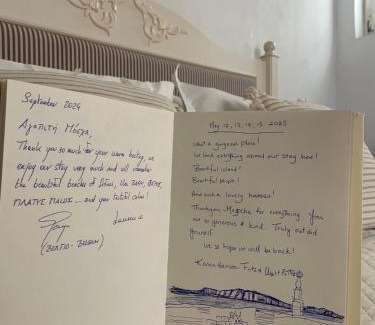 September 2024
Αγαπητή Μόσχα,
Thank you so much for your warm hosting, we
enjoy our stay very much and will remember
the beautiful beaches of
ΠΛΑΤΥΣ ΓΙΑΛΟΣ ... and your tasteful cakes!
(ΒΕΛΓΙΟ - BELGIUM)
May 10, 12, 13, 14, 15 2025
What a gorgeous place!
We loved everything around our stay here!
Beautiful island!
Beautiful people!
And such a lovely hostess!
Thank you for everything. You
are so generous & kind. Truly out did
yourself
We so hope we will be back!
Karen Hansen Fritz &